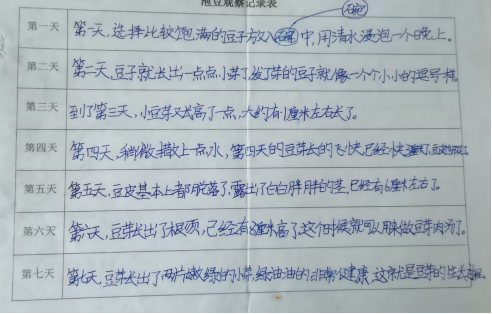 泡豆观察记录表
碗
第一天 第一天,选择比较饱满的豆子放入碗中,用清水浸泡一个晚上。
第二天 第二天,豆子就长出一点点小芽了,发了芽的豆子就像一个个小小的逗号
第三天 到了第三天,小豆芽又长高了一点,大约有1厘米左右长了。
第四天 第四天,稍微撒上一点水,第四天的豆芽长的飞快已经快3厘米了,豆皮
第五天 第五天,豆皮基本上都脱落了,露出了白白胖胖的茎,已经有6厘米左右了。
第六天 第六天,豆芽长出了根须,已经有8厘米高了,这个时候就可以用来做豆芽肉汤了。
第七天 第七天,豆芽长出了两片嫩绿的小芽,绿油油的非常健康,这就是豆芽的生长